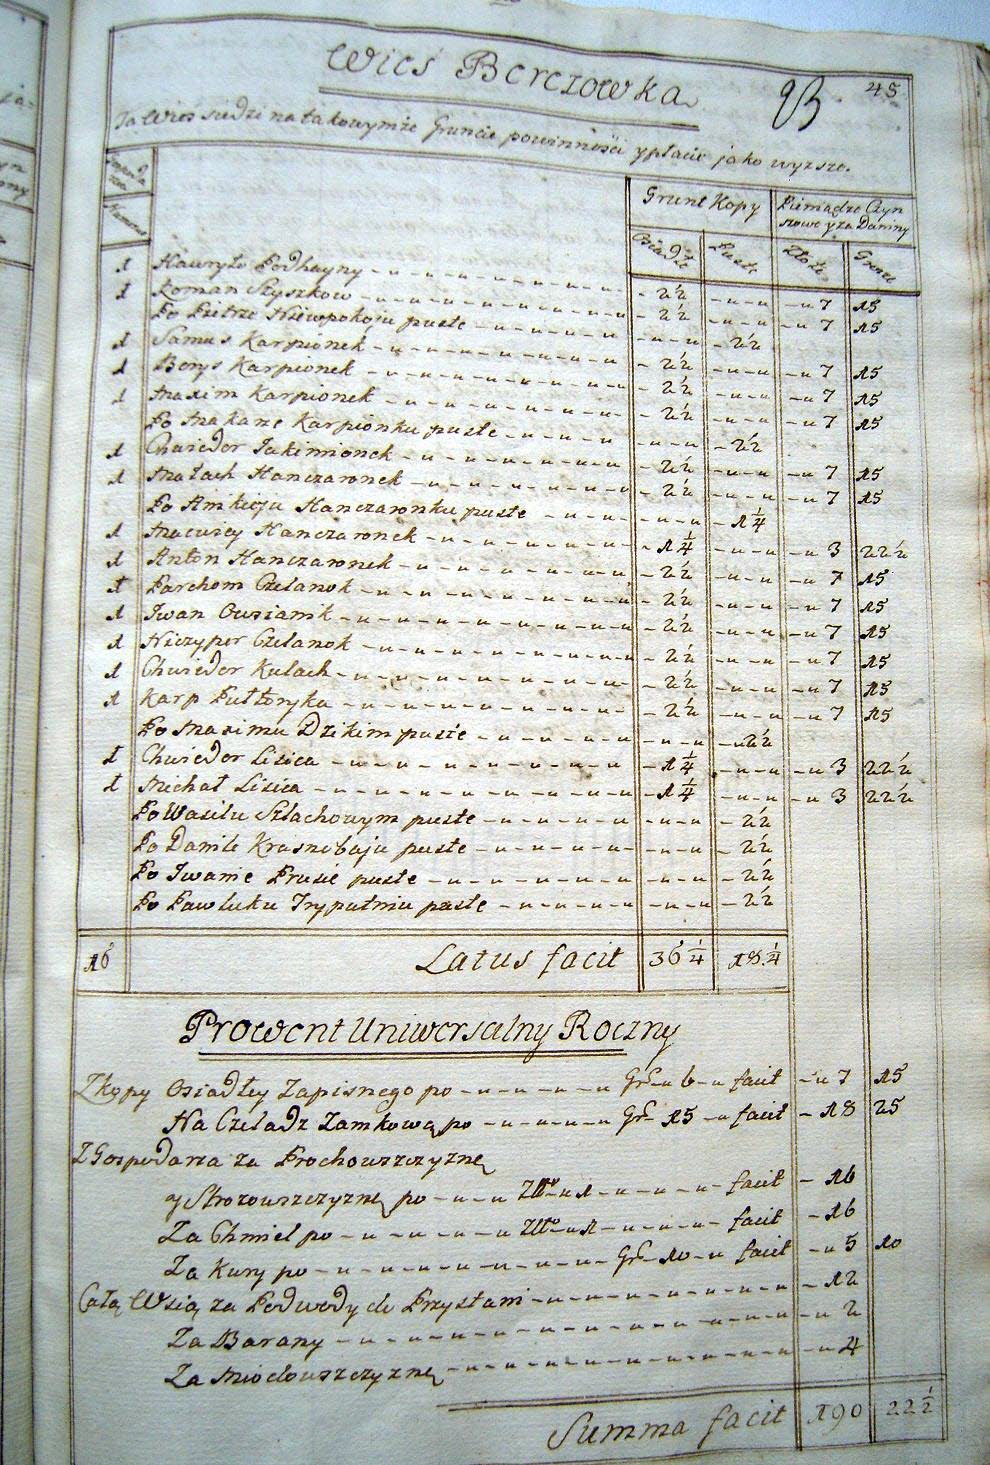 Wieś Berczowka
45
Ta Wieś siedzi na takowymże Gruncie powinności y płacić jako wyższe.
Grunt Kopy Pieniądze Czyn
szowe y za Daniny
Osiadłe Puste Złote Grosze
1 Hawryło Podhayny 2½ 7 15
1 Roman Szyszkow 2½ 7 15
Po Pietrze Niewpokoju puste 2½
1 Samuś Karpionek 2½ 7 15
1 Borys Karpionek 2½ 7 15
1 Maxim Karpionek 2½ 7 15
Po Makarze Karpionku puste 2½
1 Chwiedor Jakimionek 2½ 7 15
1 Małach Hanczaronek 2½ 7 15
Po Amkieju Hanczaronku puste 1¼
1 Hanczaronek 1¼ 3 22½
1 Anton Hanczaronek 2½ 7 15
1 Parchom Czelanok 2½ 7 15
1 Jwan 2½ 7 15
1 Niczyper Czelanok 2½ 7 15
1 Chwiedor Kulach 2½ 7 15
1 Karp Pułtoryka 2½ 7 15
Po Maximu Dzikim puste 2½
1 Chwiedor Lisica 1¼ 3 22½
1 Michał Lisica 1¼ 3 22½
Po Wasilu Szlachowym puste 2½
Po Danile Krasnobaju puste 2½
Po Jwanie Prusie puste 2½
Po Pawluku Tryputniu puste 2½
16 Latus facit 36¼ 18¼
Prowent Uniwersalny Roczny
Z kopy Osiadłey Zapisnego po Gr 6 facit 7 15
Na Czeladz Zamkową po Gr 15 facit 18 25
Z Gospodarza za Prochowszczyznę
y Strozowszczyznę po Złto 1 facit 16
Za Chmiel po Złto 1 facit 16
Za Kury po Gr 10 facit 5 10
Całą Wsią za Podwody do Przystani 12
Za Barany 2
Za Miodowszczyznę 4
Summa facit 190 22½